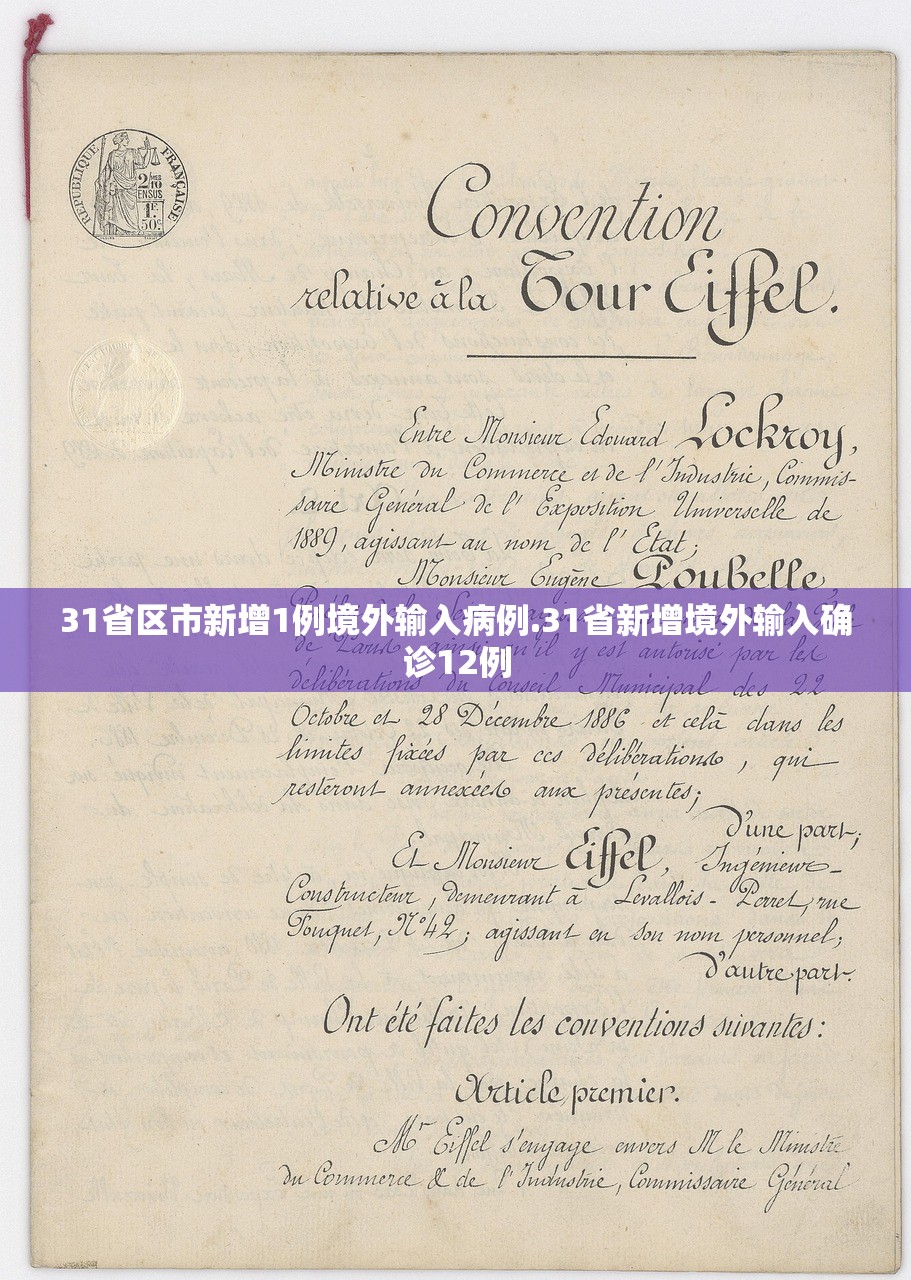 RÉPUBLIQUE FRANÇAISE
2/10
EN SUS
1F.
50c
Convention
relative à la Tour Eiffel.
Entre Monsieur Edouard Lockroy,
Ministre du Commerce et de l'Industrie, Commis-
saire Général de l'Exposition Universelle de
1889, agissant au nom de l'Etat;
Monsieur Eugène Poubelle
31省区市新增1例境外输入病例.31省新增境外输入确
诊12例
de Paris ainsi qu'il y est autorisé par les
délibérations du Conseil Municipal des 22
Octobre et 28 Décembre 1886 et celà dans les
limites fixées par ces délibérations, qui
resteront annexées aux présentes;
D'une part;
Et Monsieur Eiffel, Ingénieur-
Constructeur, demeurant à Levallois-Perret, rue
Fouquet, N° 42; agissant en son nom personnel;
D'autre part.
Ont été faites les conventions suivantes:
Article premier.
Mr Eiffel s'engage envers M le Ministre
du Commerce & de l'Industrie, Commissaire Général